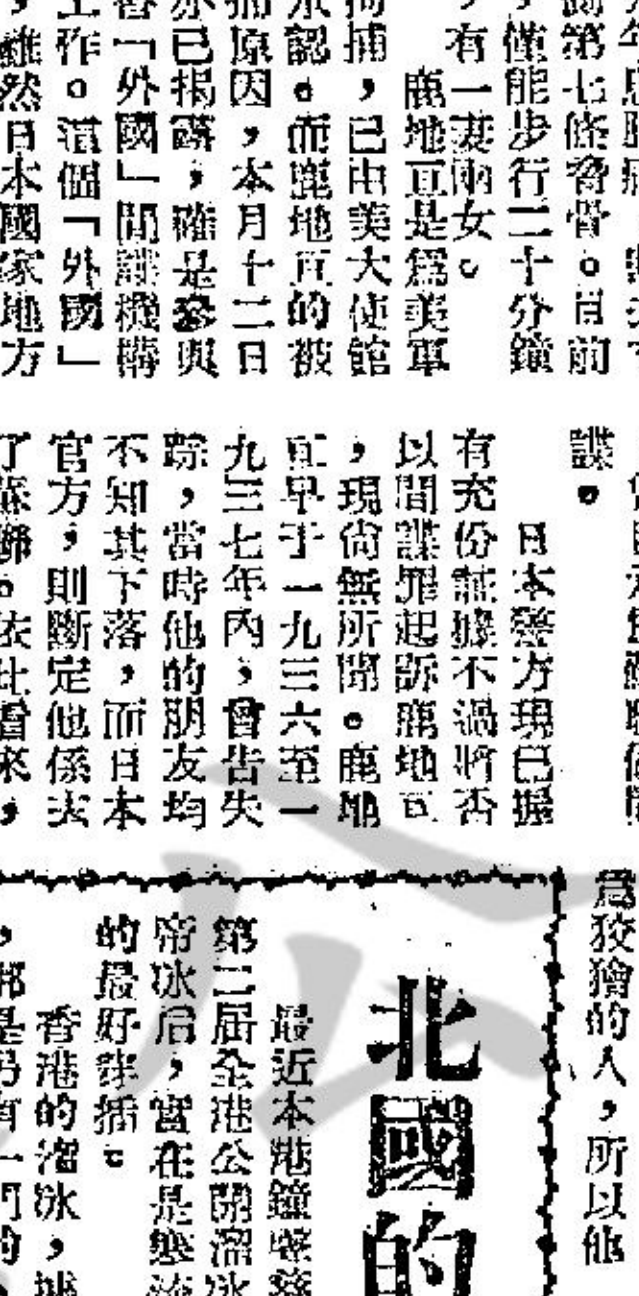 第七條脅骨。目前
，僅能步行二十分鐘
，有一妻兩女。
鹿地亘是爲美軍
拘捕，已由美大使館
承認。而鹿地亘的被
捕原因，本月十二日
亦已揭露，確是參與
「外國」間諜機構
工作。這個「外國」
，雖然日本國家地方
諜。
日本警方現已握
有充份証據不過將否
以間諜罪起訴鹿地亘
，現尚無所聞。鹿地
亘早于一九三六至一
九三七年內，曾告失
踪，當時他的朋友均
不知其下落，而日本
官方，則斷定他係去
了蘇聯。依此看來，
爲狡獪的人，所以他
北國的
最近本港鐘聲慈
第二屆全港公開溜冰
帝冰后，實在是寒流
的最好
香港的溜冰，